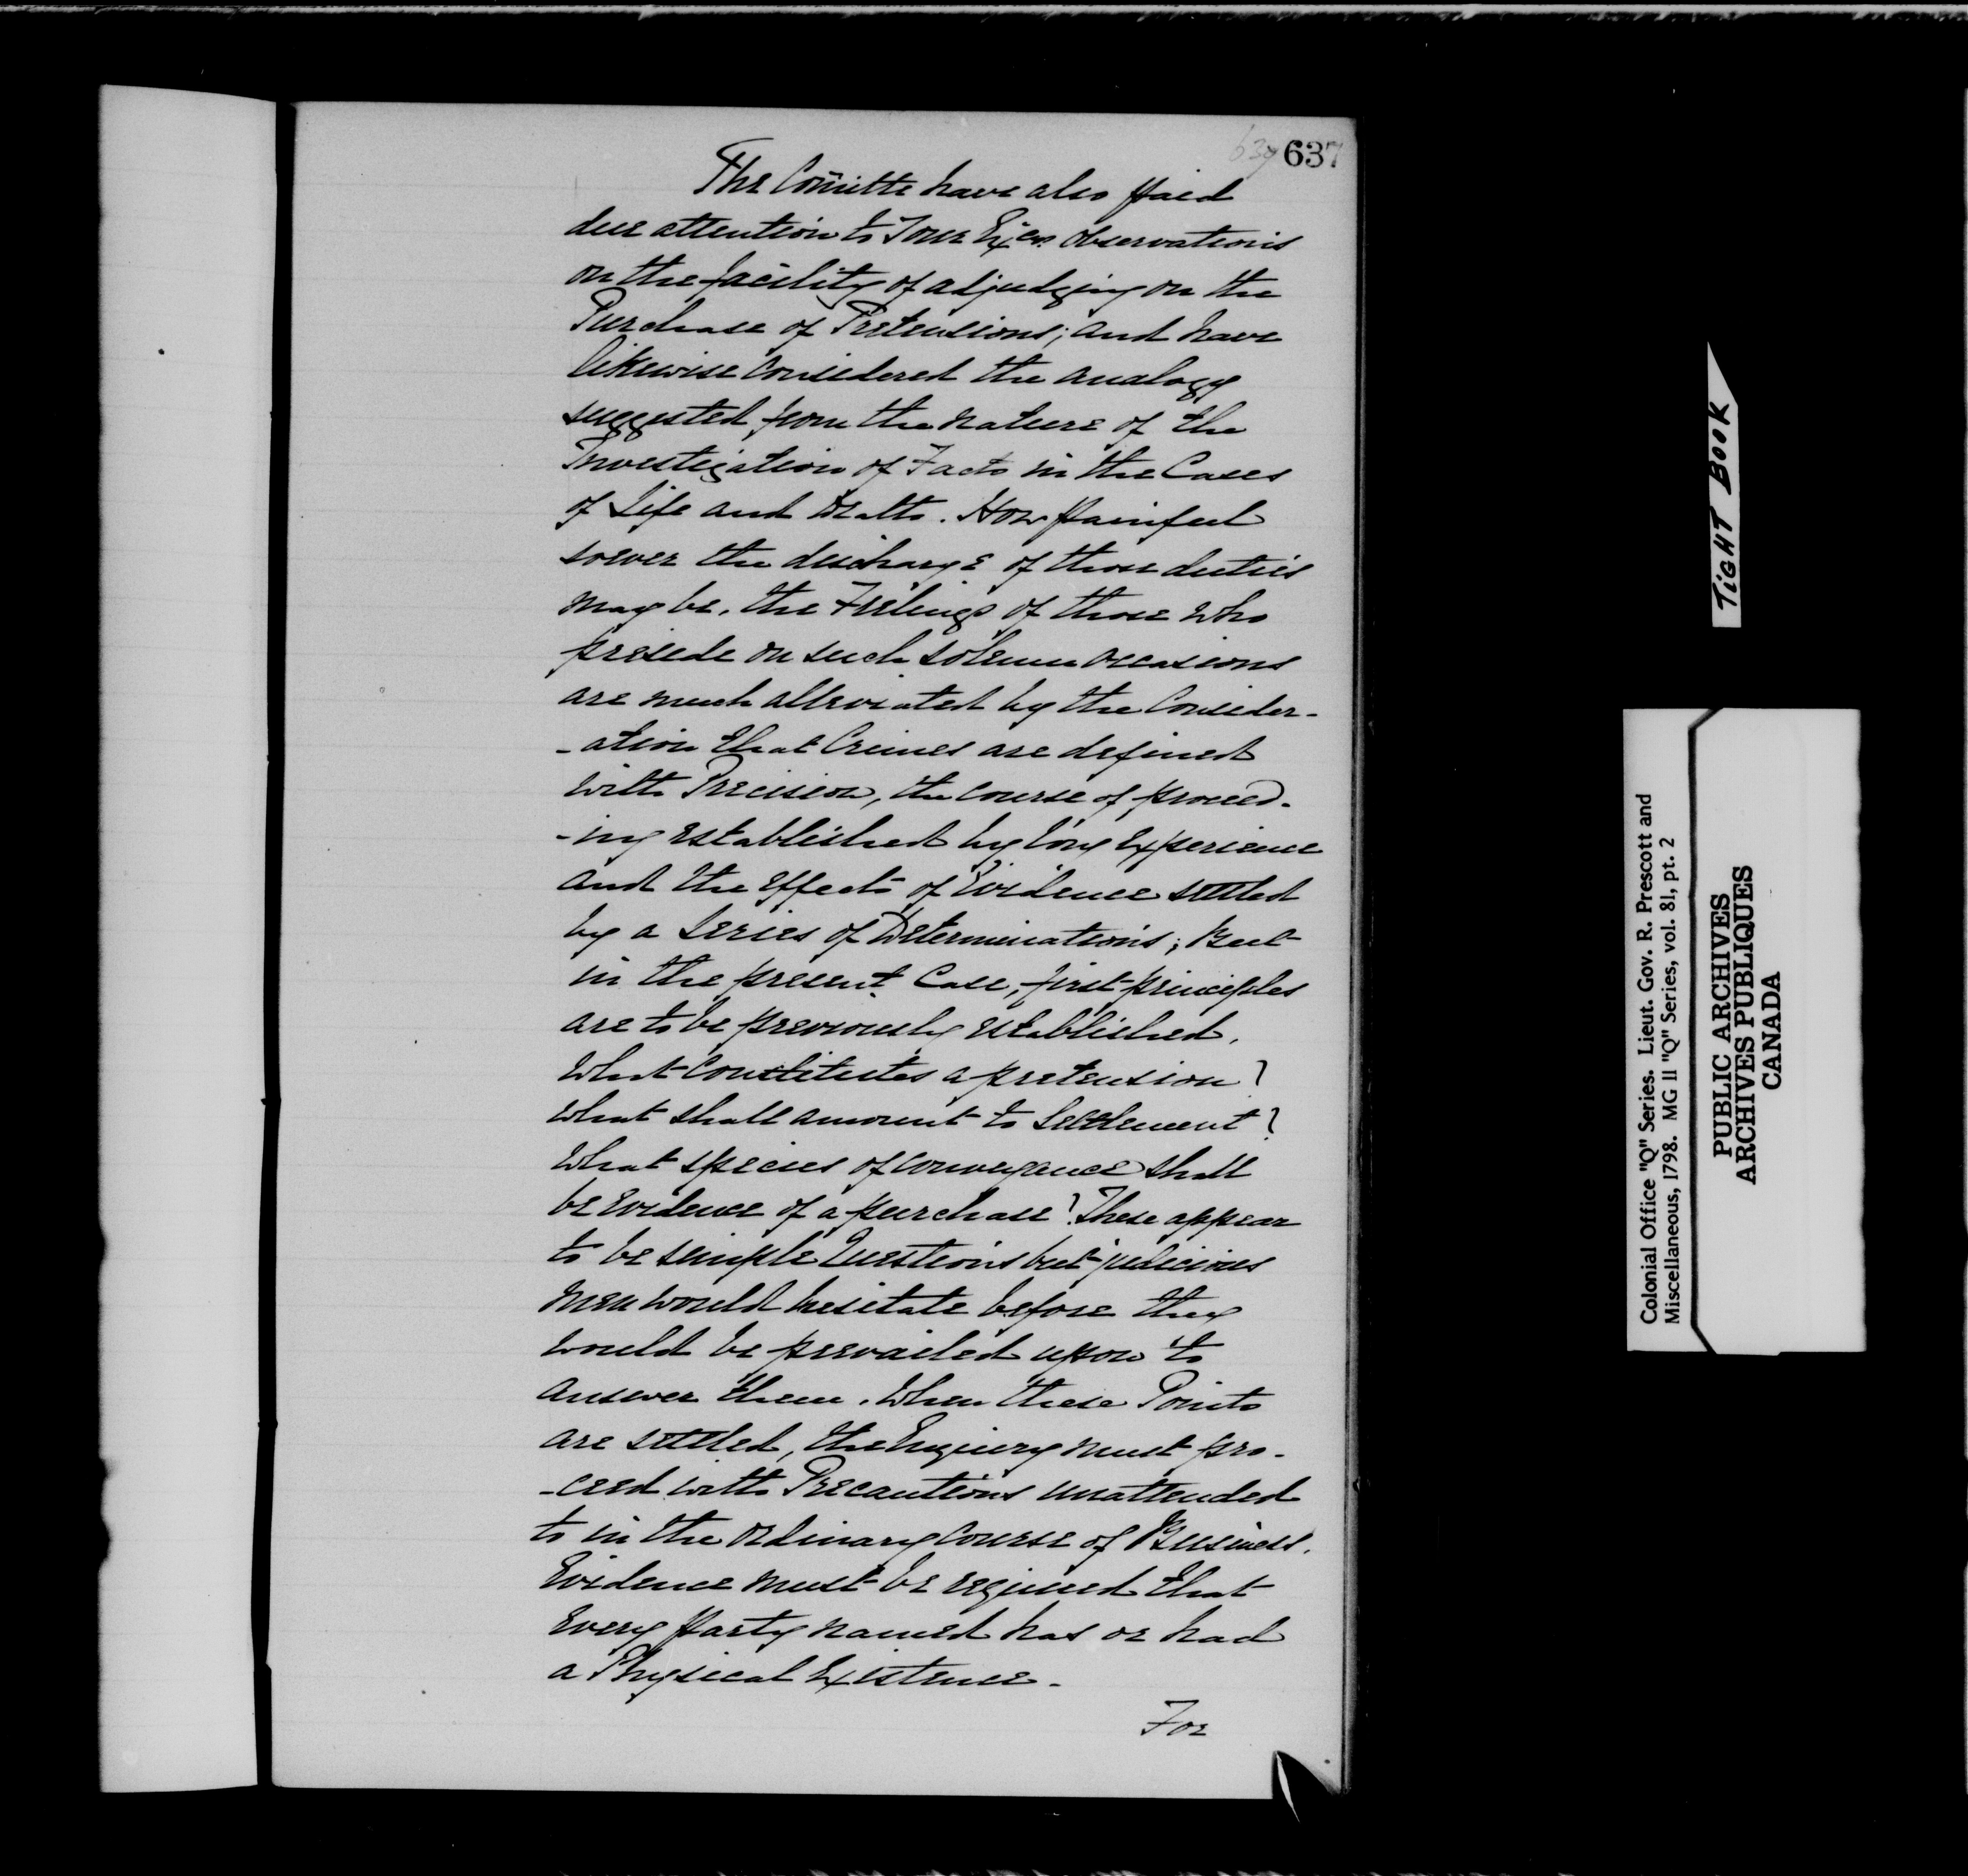 637 637
The Com̄itte have also paid
due attention to Your Exc̄ys observations
on the facility of adjudging on the
Purchase of Pretensions; and have
likewise considered the analogy
suggested from the nature of the
Investigation of Facts in the Cases
of Life and Death. How painful
soever the discharge of those duties
may be, the Feelings of those who
preside on such solemn occasions
are much alleviated by the Consider-
-ation that Crimes are defined
with Precision, the course of proceed-
-ing established by long experience
and the effects of Evidence settled
by a Series of Determinations; But
in the present Case, first principles
are to be previously established.
What constitutes a pretension?
what shall amount to Settlement?
What species of conveyance shall
be evidence of a purchase? These appear
to be simple Questions but judicious
men would hesitate before they
would be prevailed upon to
answer them. When these Points
are settled, the Enquiry must pro-
-ceed with Precautions unattended
to in the ordinary course of Business.
Evidence must be required that
every party named has or had
a Physical Existence.
For
TIGHT BOOK
Colonial Office "Q" Series. Lieut. Gov. R. Prescott and
Miscellaneous, 1798. MG 11 "Q" Series, vol. 81, pt. 2
PUBLIC ARCHIVES
ARCHIVES PUBLIQUES
CANADA